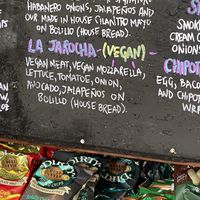 HABANERO ONIONS, JALAPEÑOS AND
OUR MADE IN HOUSE CILANTRO MAYO
ON BOLILLO (HOUSE BREAD).
LA JAROCHA (VEGAN)
VEGAN MEAT, VEGAN MOZZARELLA,
LETTUCE, TOMATOE, ONION,
AVOCADO, JALAPEÑOS ON
BOLILLO (HOUSE BREAD).
SMOK
CREAM C
ONIONS
CHIPOT
EGG, BACO
AND CHIPOT
WR